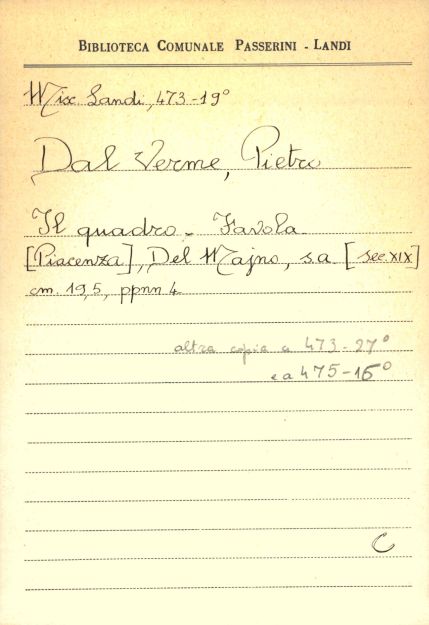 BIBLIOTECA COMUNALE PASSERINI - LANDI
Misc Landi, 473-19°
Dal Verme, Pietro
Il quadro - Favola
[Piacenza], Del Majno, s.a. [sec. XIX]
cm. 19,5, ppnn 4
altra copia a 473-27°
e a 475-16°
C